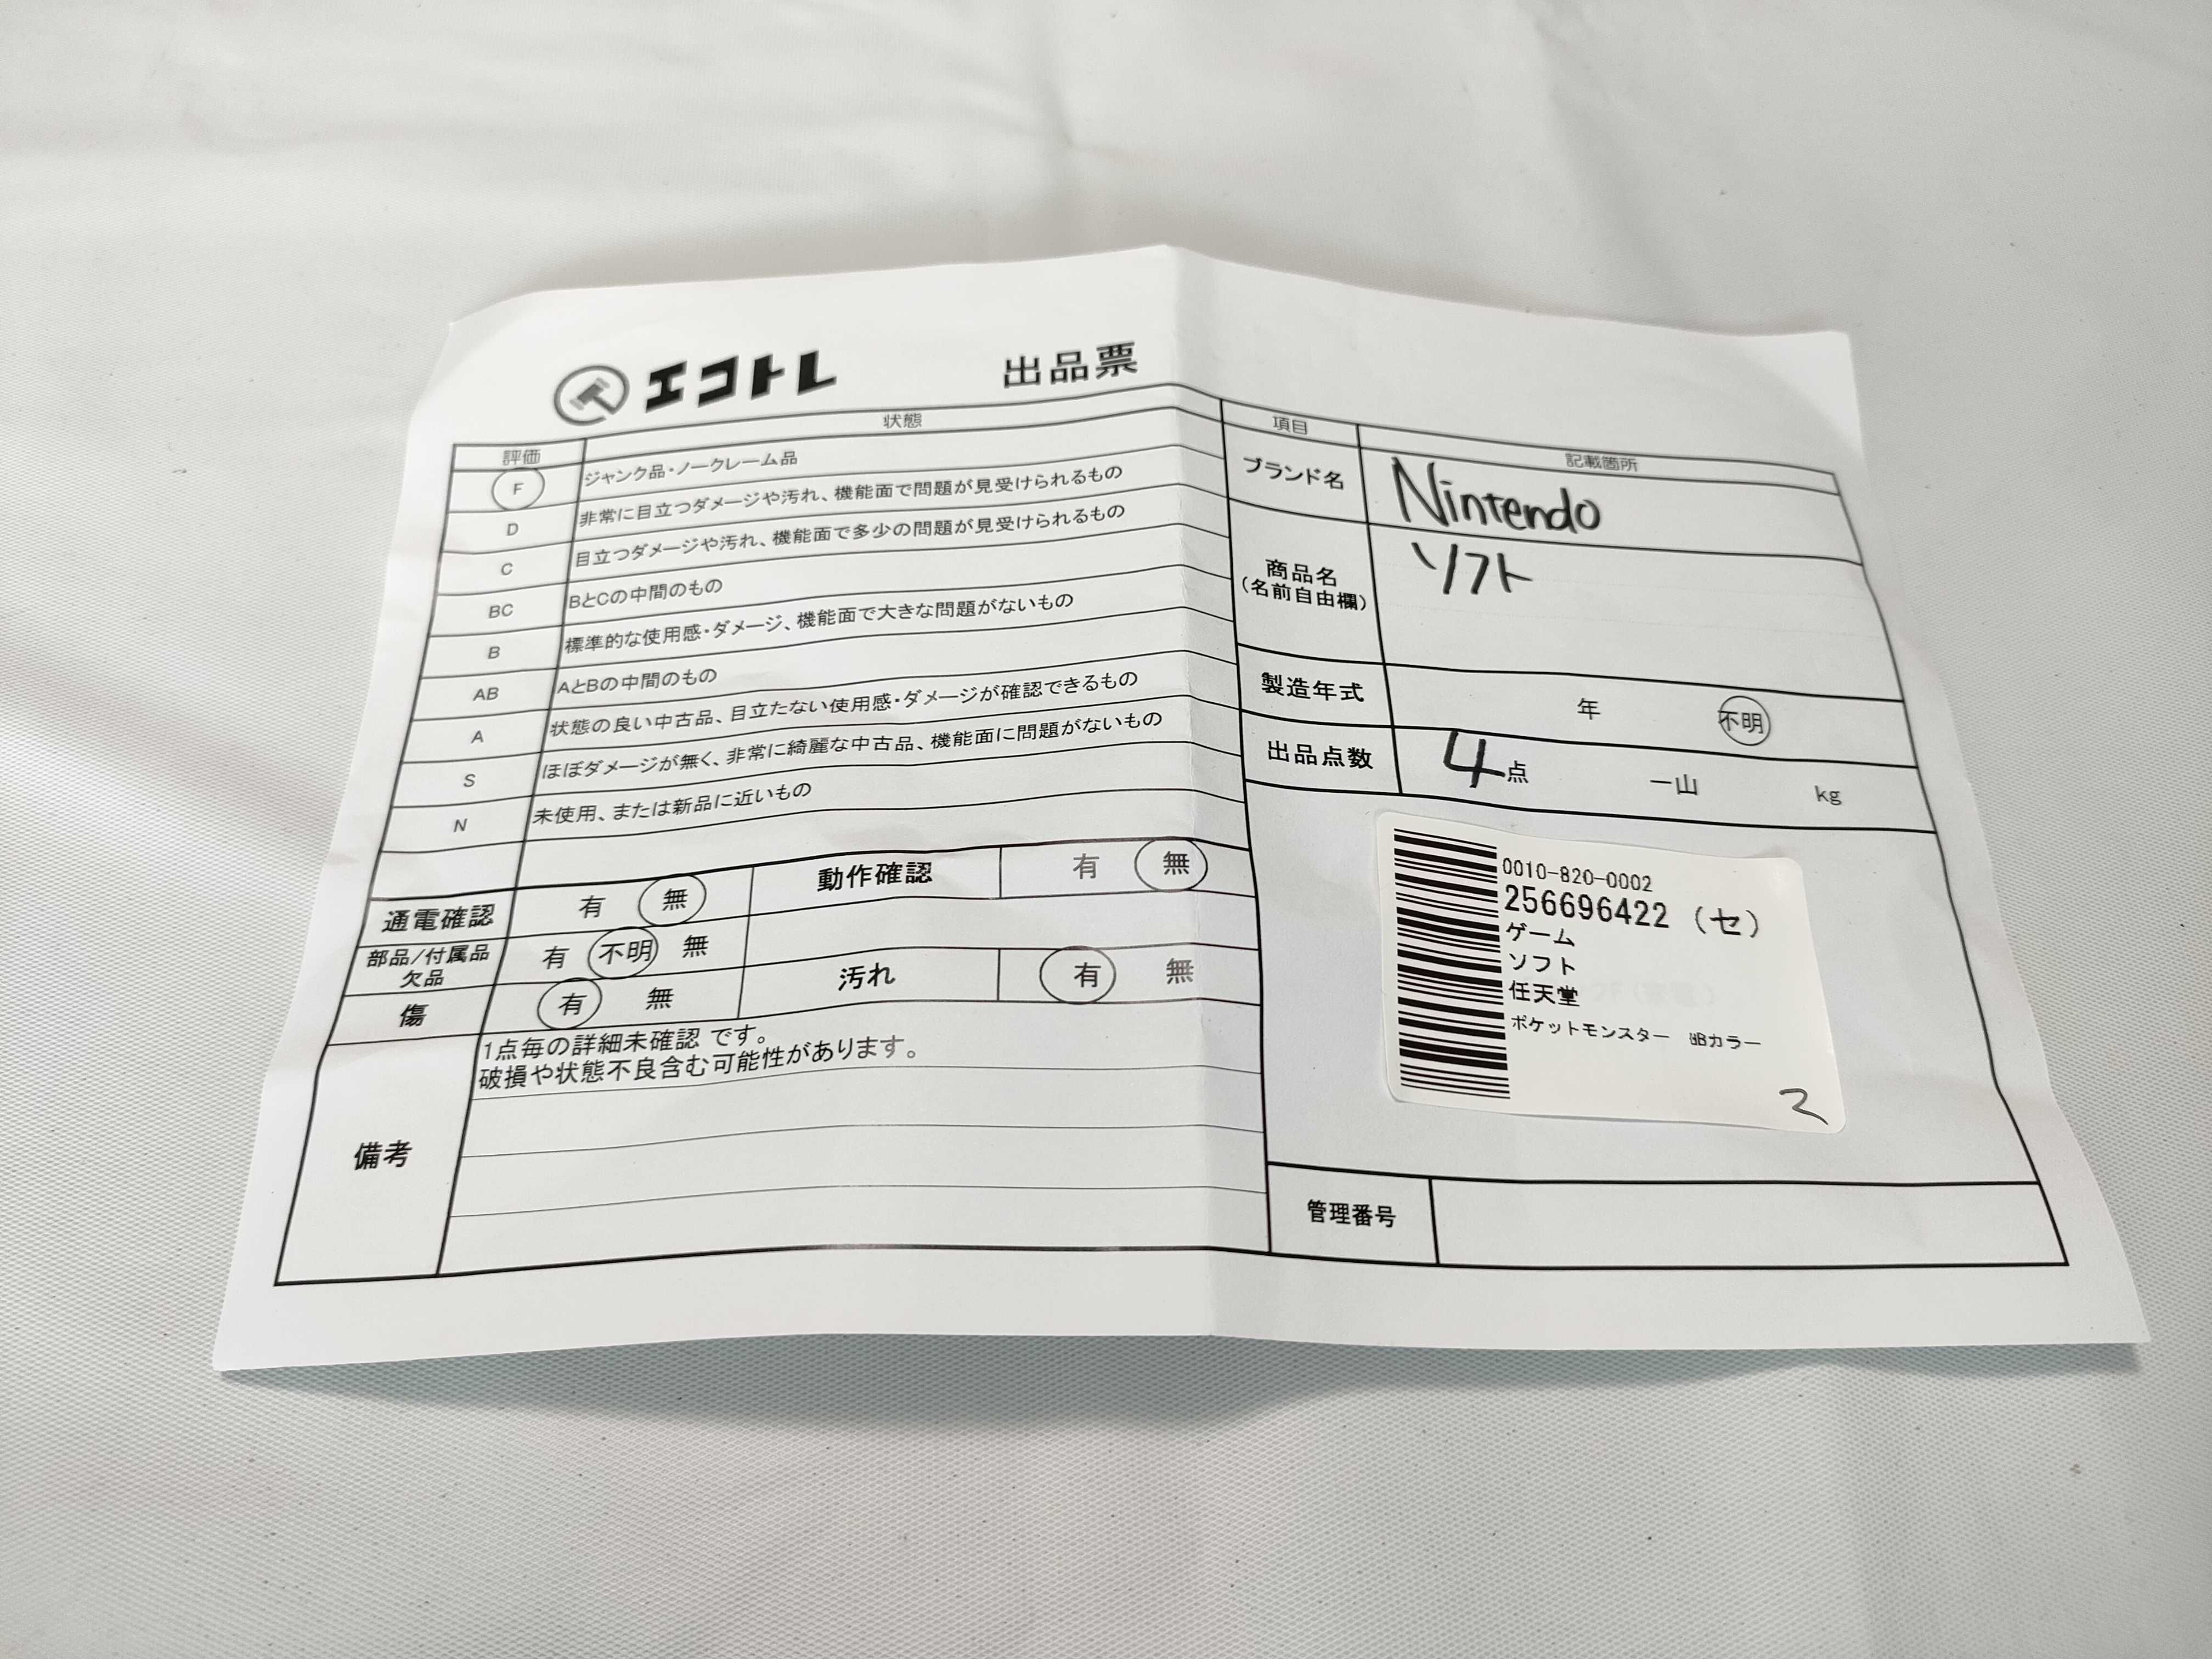 エコトレ 出品票
評価 状態
F ジャンク品・ノークレーム品
D 非常に目立つダメージや汚れ、機能面で問題が見受けられるもの
C 目立つダメージや汚れ、機能面で多少の問題が見受けられるもの
BC BとCの中間のもの
B 標準的な使用感・ダメージ、機能面で大きな問題がないもの
AB AとBの中間のもの
A 状態の良い中古品、目立たない使用感・ダメージが確認できるもの
S ほぼダメージが無く、非常に綺麗な中古品、機能面に問題がないもの
N 未使用、または新品に近いもの
通電確認 有 無 動作確認 有 無
部品/付属品
欠品 有 不明 無
傷 有 無 汚れ 有 無
備考 1点毎の詳細未確認 です。
破損や状態不良含む可能性があります。
項目 記載箇所
ブランド名 Nintendo
商品名
(名前自由欄) ソフト
製造年式 年 不明
出品点数 4点 一山 kg
0010-820-0002
256696422 (セ)
ゲーム
ソフト
任天堂
ポケットモンスター カラー
2
管理番号